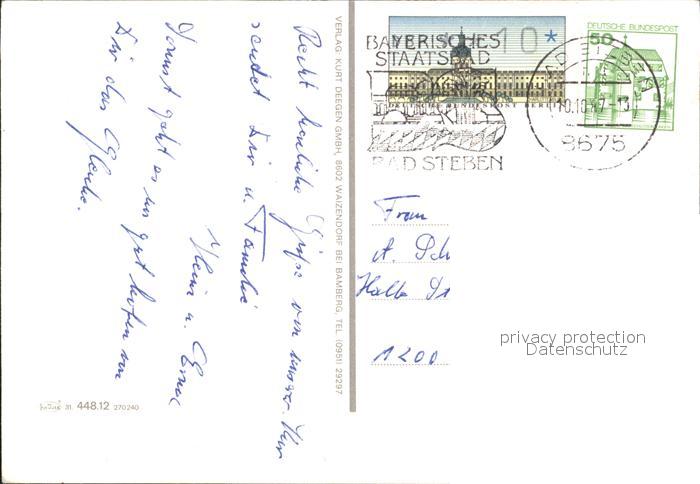 Recht herzliche Grüße von unserer Kur
sendet Dir u. Familie
Heinz u. Erna
Sonst geht es uns gut hoffen von
Dir das Gleiche.
VERLAG: KURT DEEGEN GMBH, 8602 WAIZENDORF BEI BAMBERG, TEL. (0951) 29297
31. 448.12 270240
BAYERISCHES
STAATSBAD
BAD STEBEN
10*
DEUTSCHE BUNDESPOST BERLIN
DEUTSCHE BUNDESPOST
50
BAD STEBEN
10.10.87-13
8675
Frau
A. Sch
Halle St
1200
privacy protection
Datenschutz